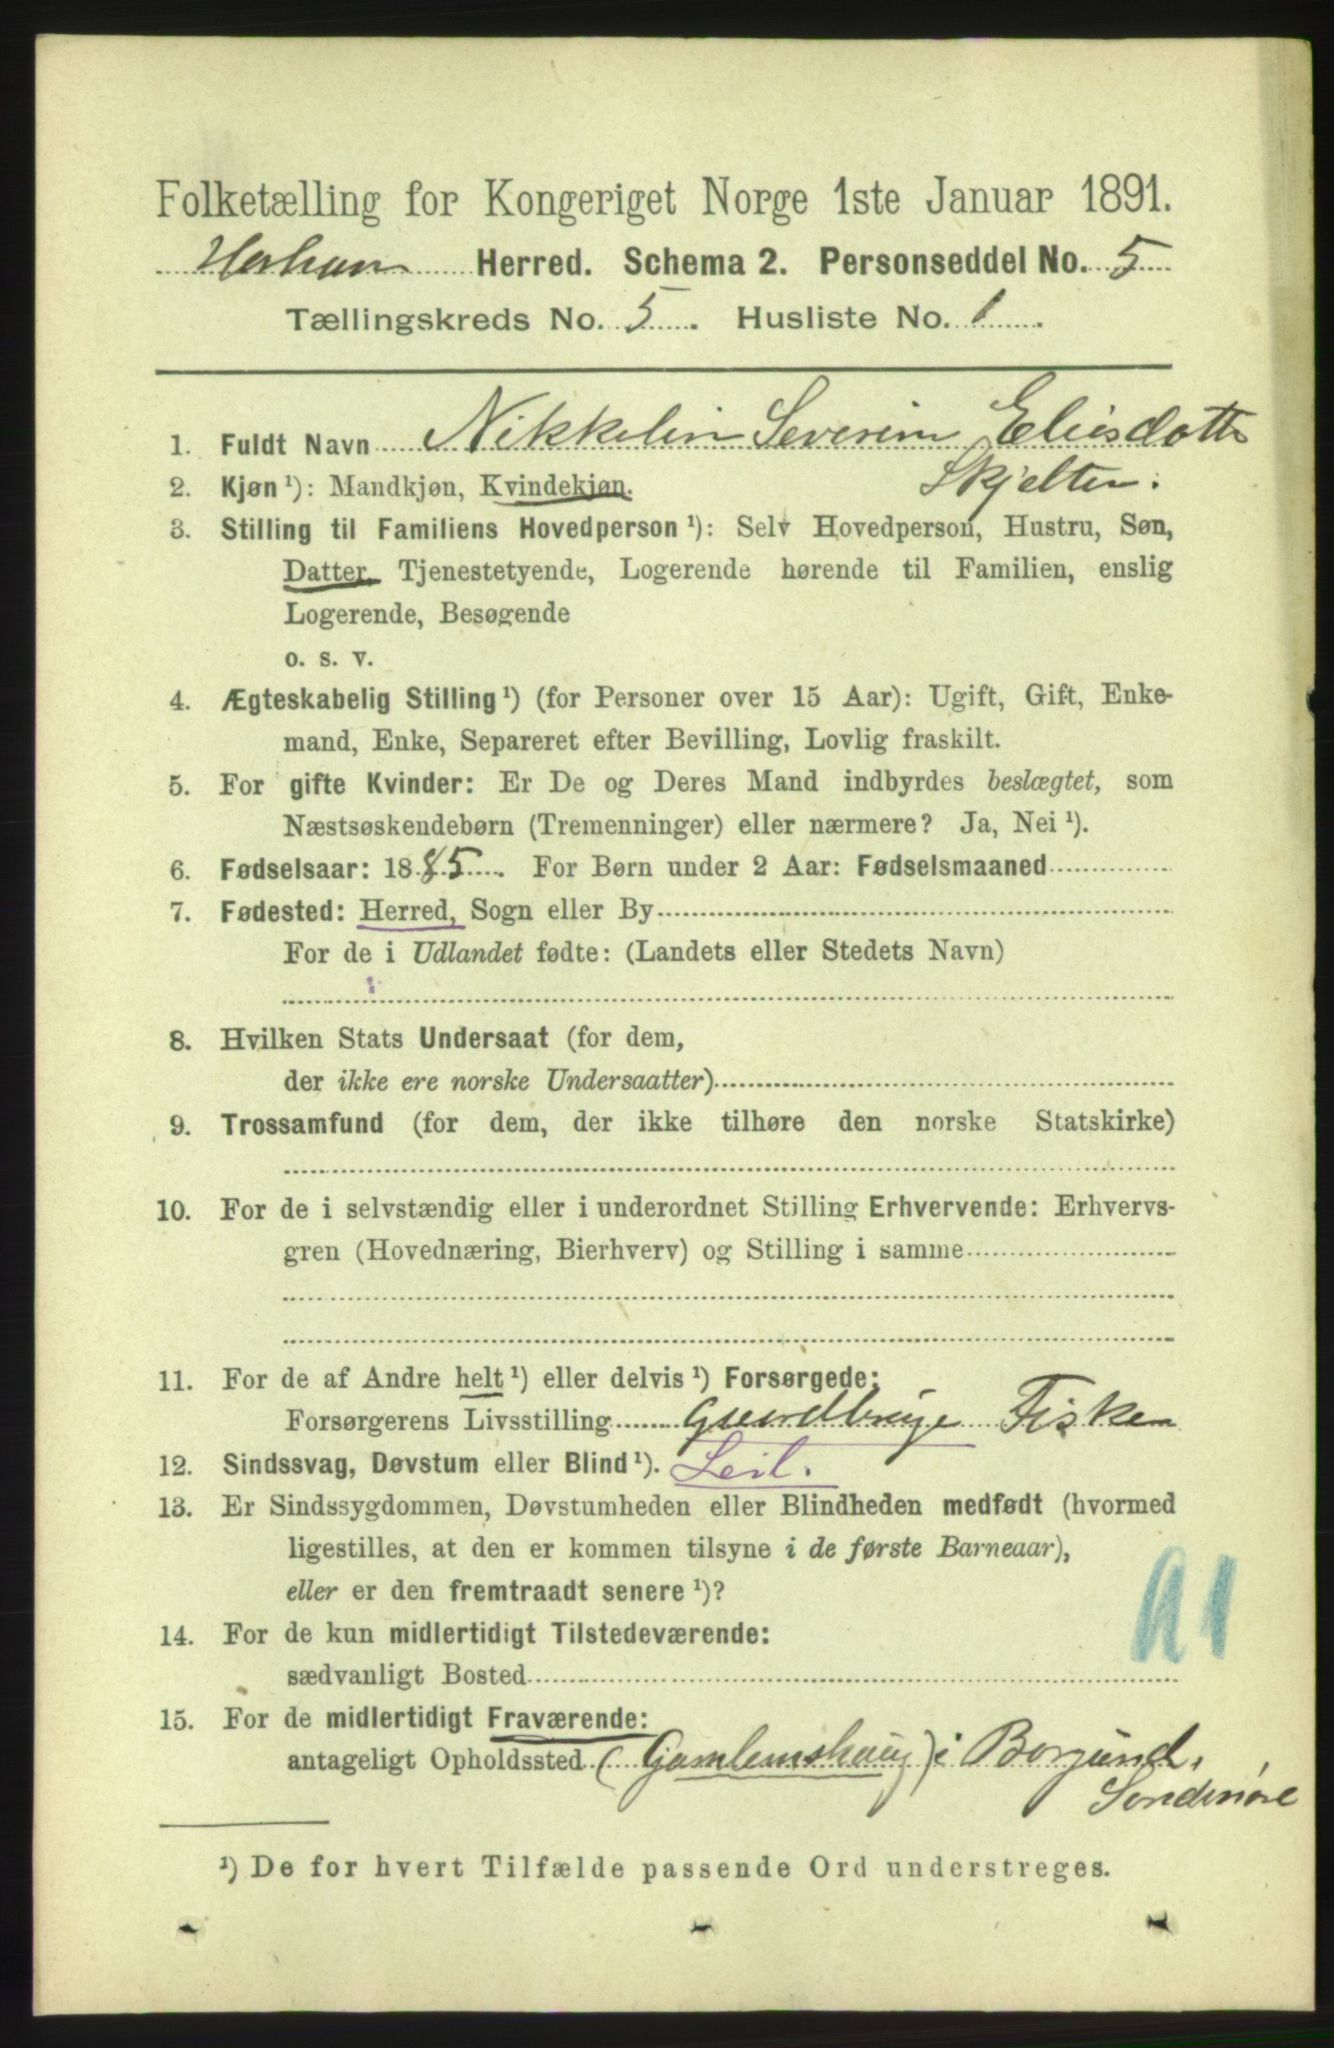 Folketælling for Kongeriget Norge 1ste Januar 1891.
Harham Herred. Schema 2. Personseddel No. 5
Tællingskreds No. 5. Husliste No. 1.
1. Fuldt Navn Nikkelin Severin Eliisdotter
Skjelten.
2. Kjøn ¹): Mandkjøn, Kvindekjøn.
3. Stilling til Familiens Hovedperson ¹): Selv Hovedperson, Hustru, Søn,
Datter, Tjenestetyende, Logerende hørende til Familien, enslig
Logerende, Besøgende
o. s. v.
4. Ægteskabelig Stilling ¹) (for Personer over 15 Aar): Ugift, Gift, Enke-
mand, Enke, Separeret efter Bevilling, Lovlig fraskilt.
5. For gifte Kvinder: Er De og Deres Mand indbyrdes beslægtet, som
Næstsøskendebørn (Tremenninger) eller nærmere? Ja, Nei ¹).
6. Fødselsaar: 1885. For Børn under 2 Aar: Fødselsmaaned
7. Fødested: Herred, Sogn eller By
For de i Udlandet fødte: (Landets eller Stedets Navn)
8. Hvilken Stats Undersaat (for dem,
der ikke ere norske Undersaatter)
9. Trossamfund (for dem, der ikke tilhøre den norske Statskirke)
10. For de i selvstændig eller i underordnet Stilling Erhvervende: Erhvervs-
gren (Hovednæring, Bierhverv) og Stilling i samme
11. For de af Andre helt ¹) eller delvis ¹) Forsørgede:
Forsørgerens Livsstilling Guardbruge Fisker
12. Sindssvag, Døvstum eller Blind ¹). Leil.
13. Er Sindssygdommen, Døvstumheden eller Blindheden medfødt (hvormed
ligestilles, at den er kommen tilsyne i de første Barneaar),
eller er den fremtraadt senere ¹)?
14. For de kun midlertidigt Tilstedeværende:
sædvanligt Bosted
15. For de midlertidigt Fraværende:
antageligt Opholdssted (Gamlemshaug) i Borgund.
Søndmøre
¹) De for hvert Tilfælde passende Ord understreges.